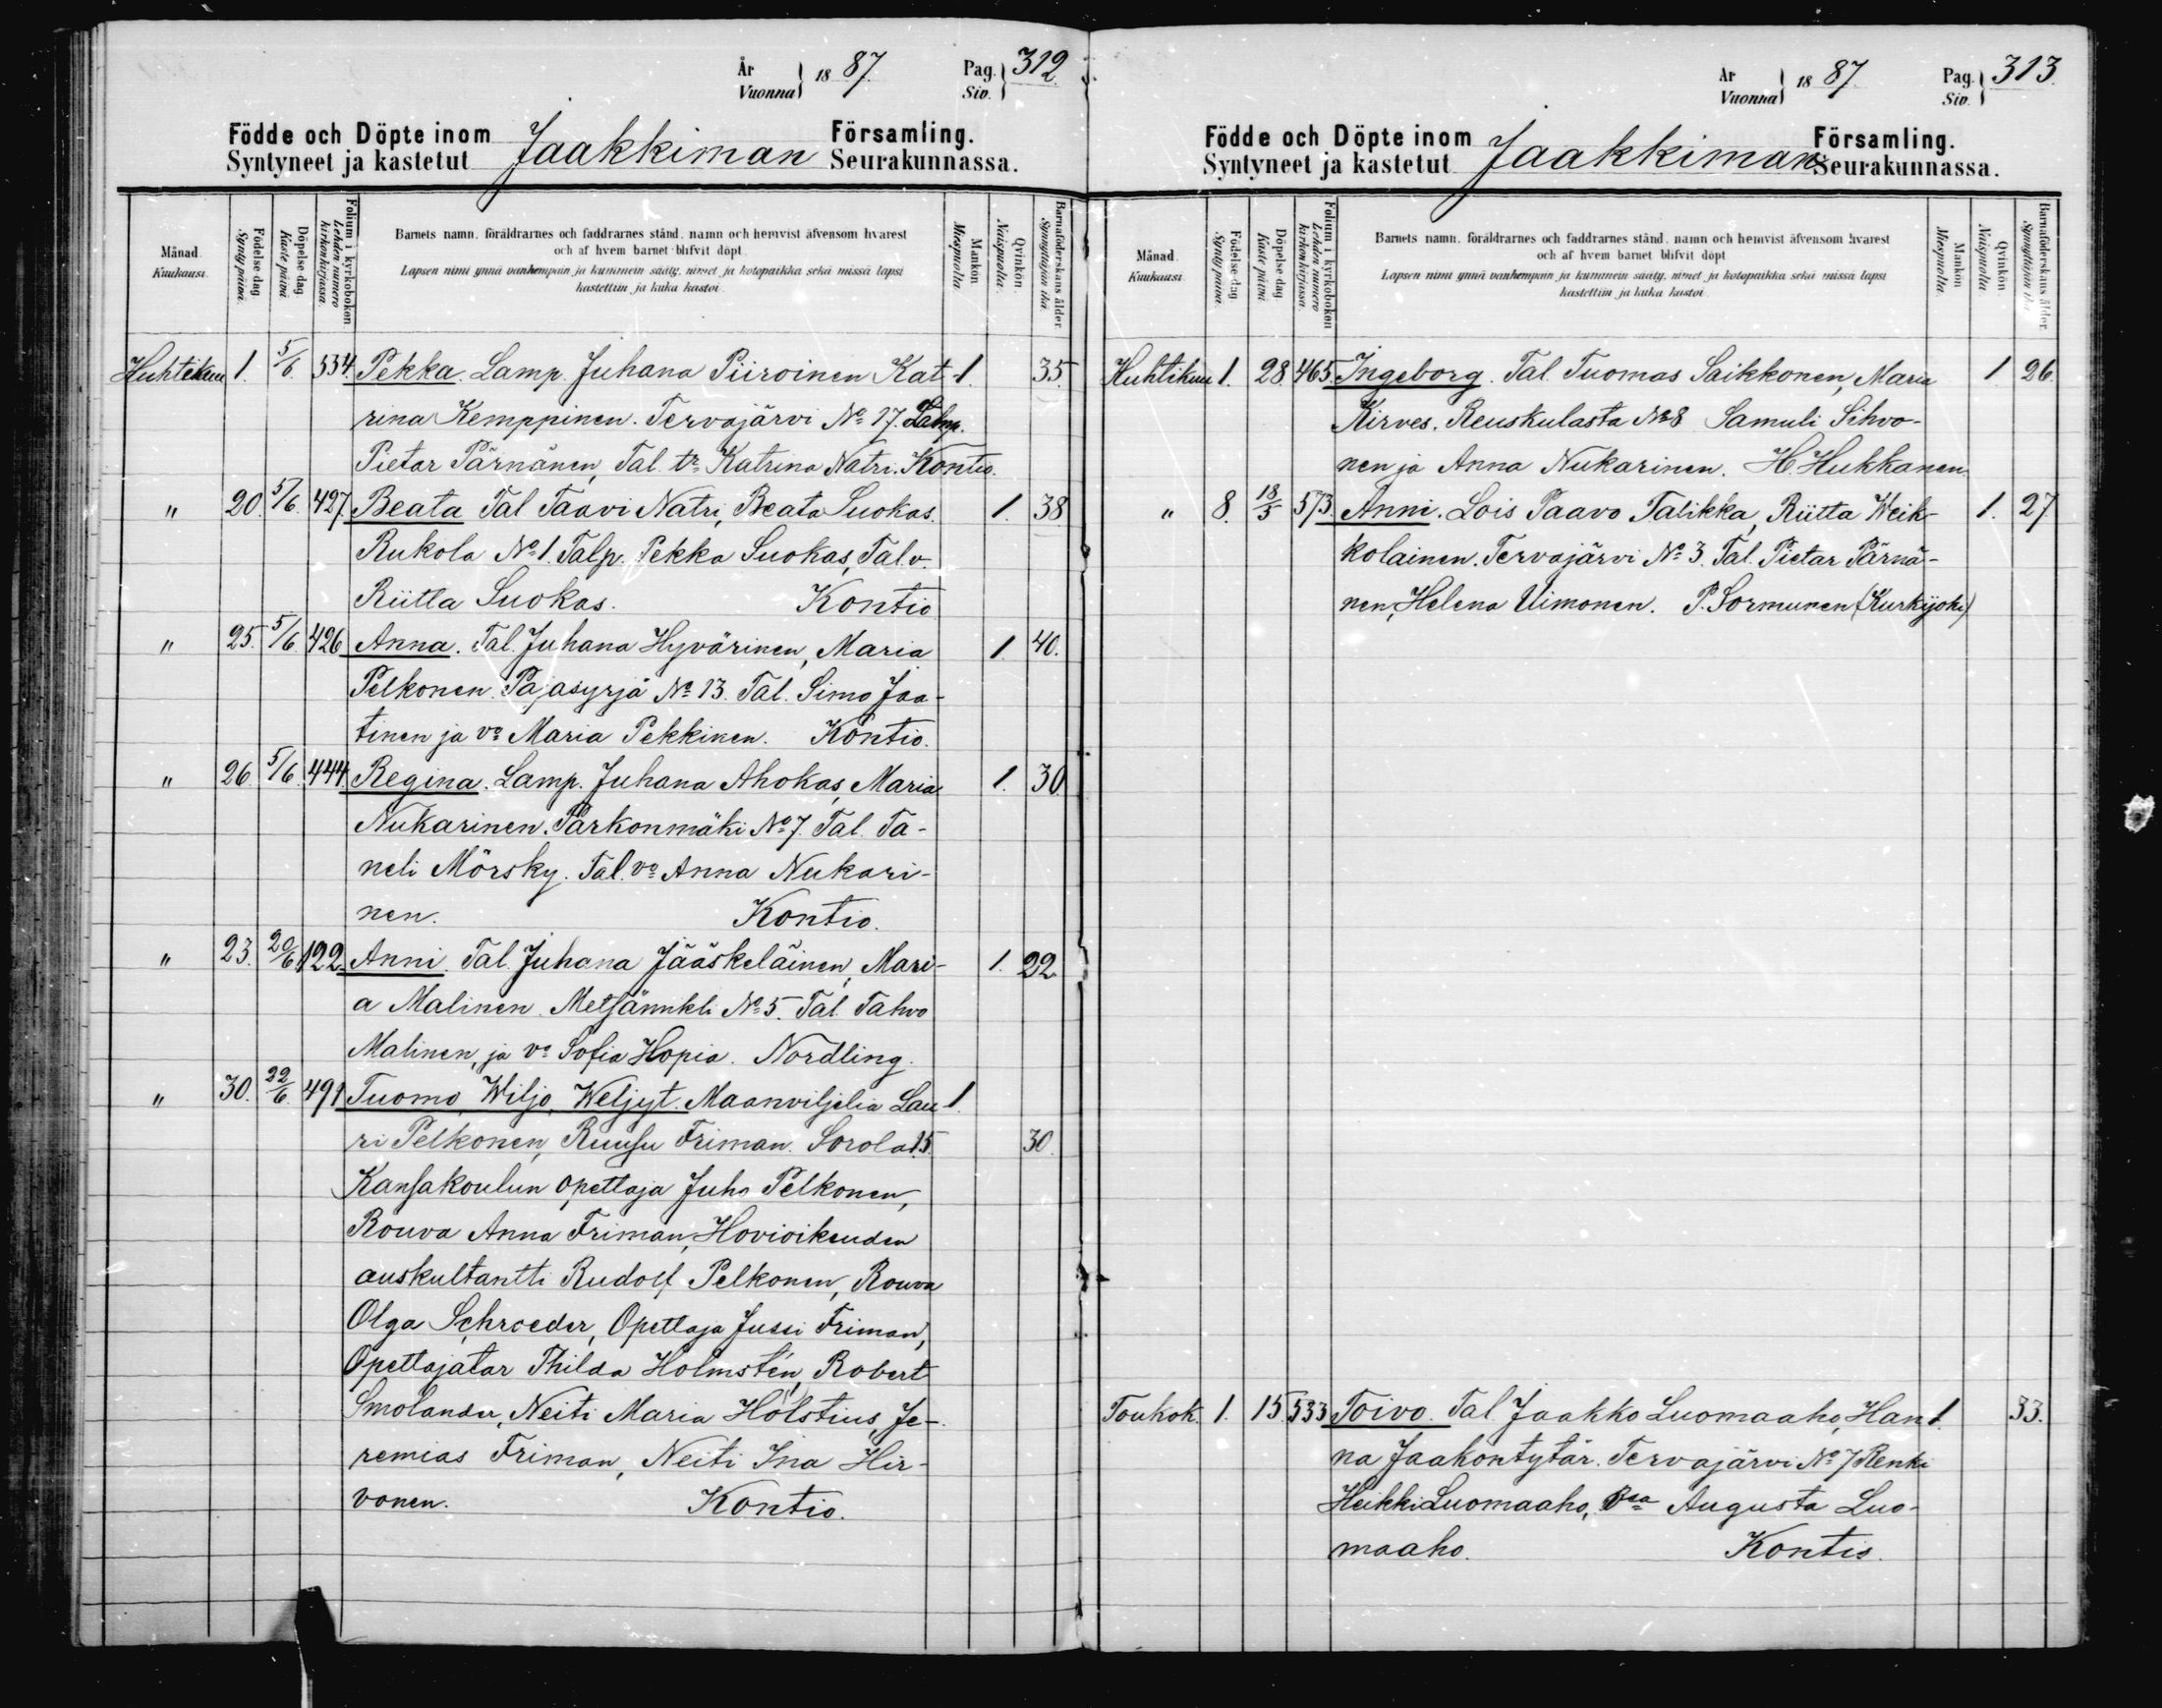 År Vuonna } 18 87. Pag. Siv. } 312.
Födde och Döpte inom Jaakkiman Församling.
Syntyneet ja kastetut Seurakunnassa.
Månad. Kuukausi.
Födelse dag Synty päivä.
Döpelse dag Kaste päivä
Folium i kyrkobokon Lehden numero kirkonkirjassa.
Barnets namn, föräldrarnes och faddrarnes stånd, namn och hemvist äfvensom hvarest
och af hvem barnet blifvit döpt.
Lapsen nimi ynnä vanhempain ja kummein sääty, nimet ja kotopaikka sekä missä lapsi
kastettiin ja kuka kastoi.
Mankön Miespuolia.
Qvinkön. Naispuolia.
Barnaföderskans ålder. Synnyttäjän ikä
Huhtikuu 1. 5/6. 534. Pekka. Lamp. Juhana Piiroinen Kat- 1. 35.
rina Kemppinen. Tervajärvi No 17. Talmp.
Pietar Pärnänen, Tal. tr Katrina Natri. Kontio.
" 20. 5/6. 427. Beata Tal Taavi Natri, Beata Suokas. 1. 38
Rukola No 1. Talp. Pekka Suokas, Tal v.
Riitta Suokas. Kontio
" 25. 5/6. 426 Anna. Tal. Juhana Hyvärinen, Maria 1. 40.
Pelkonen. Pajasyrjä No 13. Tal. Simo Jaa-
tinen ja vo Maria Pekkinen. Kontio.
" 26. 5/6. 444. Regina. Lamp. Juhana Ahokas, Maria 1. 30.
Nukarinen. Parkonmäki No 7. Tal. Ta-
neli Mörsky. Tal. vo Anna Nukari-
nen. Kontio.
" 23. 20/6. 122. Anni. Tal. Juhana Jääskeläinen, Mari- 1. 22.
a Malinen. Metsämikli No 5. Tal. Tahvo
Malinen, ja vo Sofia Hopia. Nordling.
" 30. 22/6. 491 Tuomo, Wiljo, Weljyt. Maanviljelia Lau 1.
ri Pelkonen, Ruusu Friman. Sorola 15. 30.
Kansakoulun opettaja Juho Pelkonen,
Rouva Anna Friman, Hovioikeuden
auskultantti Rudolf Pelkonen, Rouva
Olga Schroeder, Opettaja Jussi Friman,
Opettajatar Thilda Holmstén, Robert
Smolander, Neiti Maria Holstius, Je-
remias Friman, Neiti Ina Hir-
vonen. Kontio.
År Vuonna } 18 87. Pag. Siv. } 313.
Födde och Döpte inom Jaakkiman Församling.
Syntyneet ja kastetut Seurakunnassa.
Månad. Kuukausi.
Födelse dag Synty päivä.
Döpelse dag Kaste päivä
Folium i kyrkobokon Lehden numero kirkonkirjassa.
Barnets namn, föräldrarnes och faddrarnes stånd, namn och hemvist äfvensom hvarest
och af hvem barnet blifvit döpt
Lapsen nimi ynnä vanhempain ja kummein sääty, nimet ja kotopaikka sekä missä lapsi
kastettiin ja kuka kastoi
Mankön Miespuolia.
Qvinkön. Naispuolia.
Barnaföderskans ålder. Synnyttäjän
Huhtikuu 1. 28. 465. Ingeborg. Tal. Tuomas Saikkonen, Maria 1 26
Kirves. Reuskulasta No 8 Samuli Sihvo-
nen ja Anna Nukarinen. H. Hukkanen.
" 8. 18/5 573. Anni. Lois Paavo Talikka, Riitta Weik- 1. 27.
kolainen. Tervajärvi No 3. Tal. Pietar Pärnä-
nen, Helena Uimonen. P. Sormunen (Kurkijoki)
Toukok. 1. 15. 533 Toivo. Tal. Jaakko Luomaaho, Han 1. 33.
na Jaakontytär. Tervajärvi No 7 Renki
Heikki Luomaaho, Augusta Luo-
maaho. Kontio.